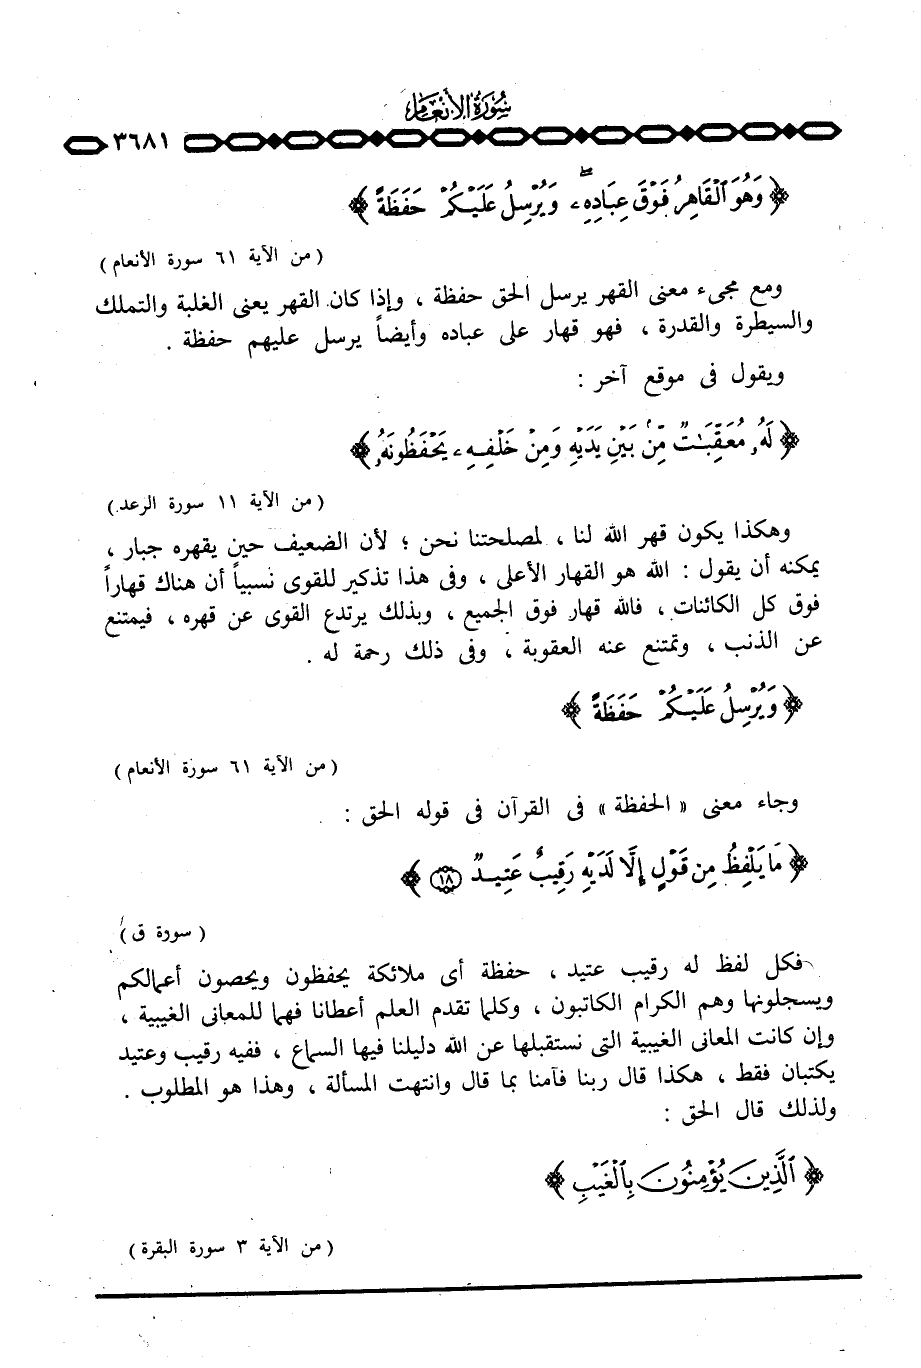 سُورَةُ الأَنْعَامِ
٣٦٨١
﴿ وَهُوَ ٱلْقَاهِرُ فَوْقَ عِبَادِهِۦ ۖ وَيُرْسِلُ عَلَيْكُمْ حَفَظَةً ﴾
( من الآية ٦١ سورة الأنعام )
ومع مجىء معنى القهر يرسل الحق حفظة ، وإذا كان القهر يعنى الغلبة والتملك
والسيطرة والقدرة ، فهو قهار على عباده وأيضاً يرسل عليهم حفظة .
ويقول فى موقع آخر :
﴿ لَهُۥ مُعَقِّبَـٰتٌ مِّنۢ بَيْنِ يَدَيْهِ وَمِنْ خَلْفِهِۦ يَحْفَظُونَهُۥ ﴾
( من الآية ١١ سورة الرعد )
وهكذا يكون قهر الله لنا ، لمصلحتنا نحن ؛ لأن الضعيف حين يقهره جبار ،
يمكنه أن يقول : الله هو القهار الأعلى ، وفى هذا تذكير للقوى نسبياً أن هناك قهاراً
فوق كل الكائنات ، فالله قهار فوق الجميع ، وبذلك يرتدع القوى عن قهره ، فيمتنع
عن الذنب ، وتمتنع عنه العقوبة ، وفى ذلك رحمة له .
﴿ وَيُرْسِلُ عَلَيْكُمْ حَفَظَةً ﴾
( من الآية ٦١ سورة الأنعام )
وجاء معنى « الحفظة » فى القرآن فى قوله الحق :
﴿ مَا يَلْفِظُ مِن قَوْلٍ إِلَّا لَدَيْهِ رَقِيبٌ عَتِيدٌ ١٨ ﴾
( سورة ق )
فكل لفظ له رقيب عتيد ، حفظة أى ملائكة يحفظون ويحصون أعمالكم
ويسجلونها وهم الكرام الكاتبون ، وكلما تقدم العلم أعطانا فهما للمعانى الغيبية ،
وإن كانت المعانى الغيبية التى نستقبلها عن الله دليلنا فيها السماع ، ففيه رقيب وعتيد
يكتبان فقط ، هكذا قال ربنا فآمنا بما قال وانتهت المسألة ، وهذا هو المطلوب .
ولذلك قال الحق :
﴿ ٱلَّذِينَ يُؤْمِنُونَ بِٱلْغَيْبِ ﴾
( من الآية ٣ سورة البقرة )